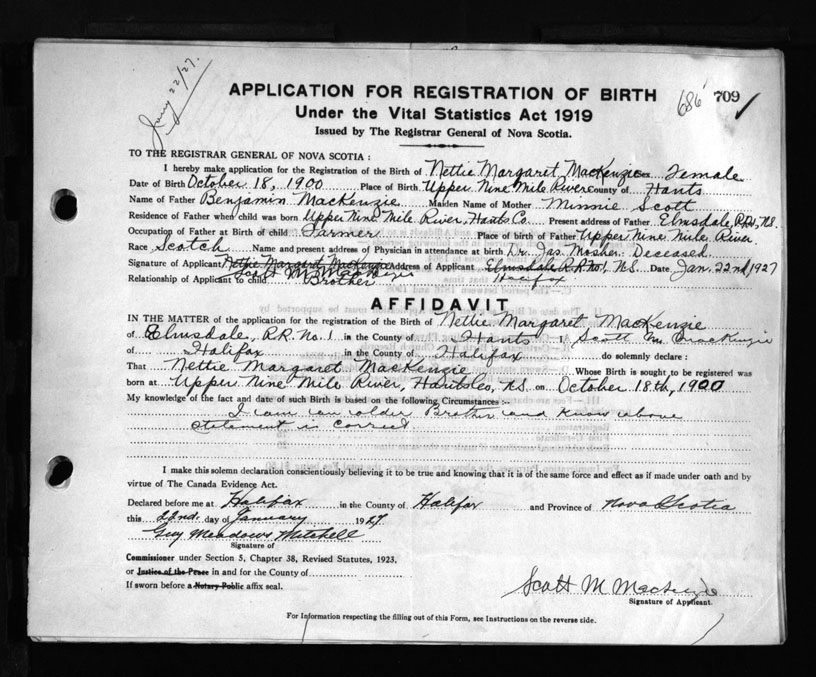 Jany 22/27.
686 709 ✓
APPLICATION FOR REGISTRATION OF BIRTH
Under the Vital Statistics Act 1919
Issued by The Registrar General of Nova Scotia.
TO THE REGISTRAR GENERAL OF NOVA SCOTIA :
I hereby make application for the Registration of the Birth of Nettie Margaret MacKenzie Female
Date of Birth October 18, 1900 Place of Birth Upper Nine Mile River County of Hants
Name of Father Benjamin MacKenzie Maiden Name of Mother Minnie Scott
Residence of Father when child was born Upper Nine Mile River, Hants Co. Present address of Father Elmsdale, R.R.1, N.S.
Occupation of Father at Birth of child Farmer Place of Birth of Father Upper Nine Mile River.
Race Scotch Name and present Address of Physician in attendance at birth Dr. Jas. Mosher. Deceased.
Signature of Applicant Nettie Margaret MacKenzie Address of Applicant Elmsdale, R.R. No. 1, N.S. Date Jan. 22nd 1927
Scott M MacKenzie Halifax
Relationship of Applicant to child Brother
AFFIDAVIT
IN THE MATTER of the application for the registration of the Birth of Nettie Margaret MacKenzie
of Elmsdale, R.R. No. 1 in the County of Hants I Scott M MacKenzie
of Halifax in the County of Halifax do solemnly declare :
That Nettie Margaret MacKenzie Whose Birth is sought to be registered was
born at Upper Nine Mile River, Hants Co, N.S. on October 18th, 1900
My knowledge of the fact and date of such Birth is based on the following Circumstances :-
I am an older Brother and know above
statement is correct
I make this solemn declaration conscientiously believing it to be true and knowing that it is of the same force and effect as if made under oath and by
virtue of The Canada Evidence Act.
Declared before me at Halifax in the County of Halifax and Province of Nova Scotia
this 22nd day of January 1927
Guy Meadows Mitchell
Signature of
Commissioner under Section 5, Chapter 38, Revised Statutes, 1923,
or Justice of the Peace in and for the County of
If sworn before a Notary Public affix seal.
Scott M MacKenzie
Signature of Applicant.
For Information respecting the filling out of this Form, see Instructions on the reverse side.